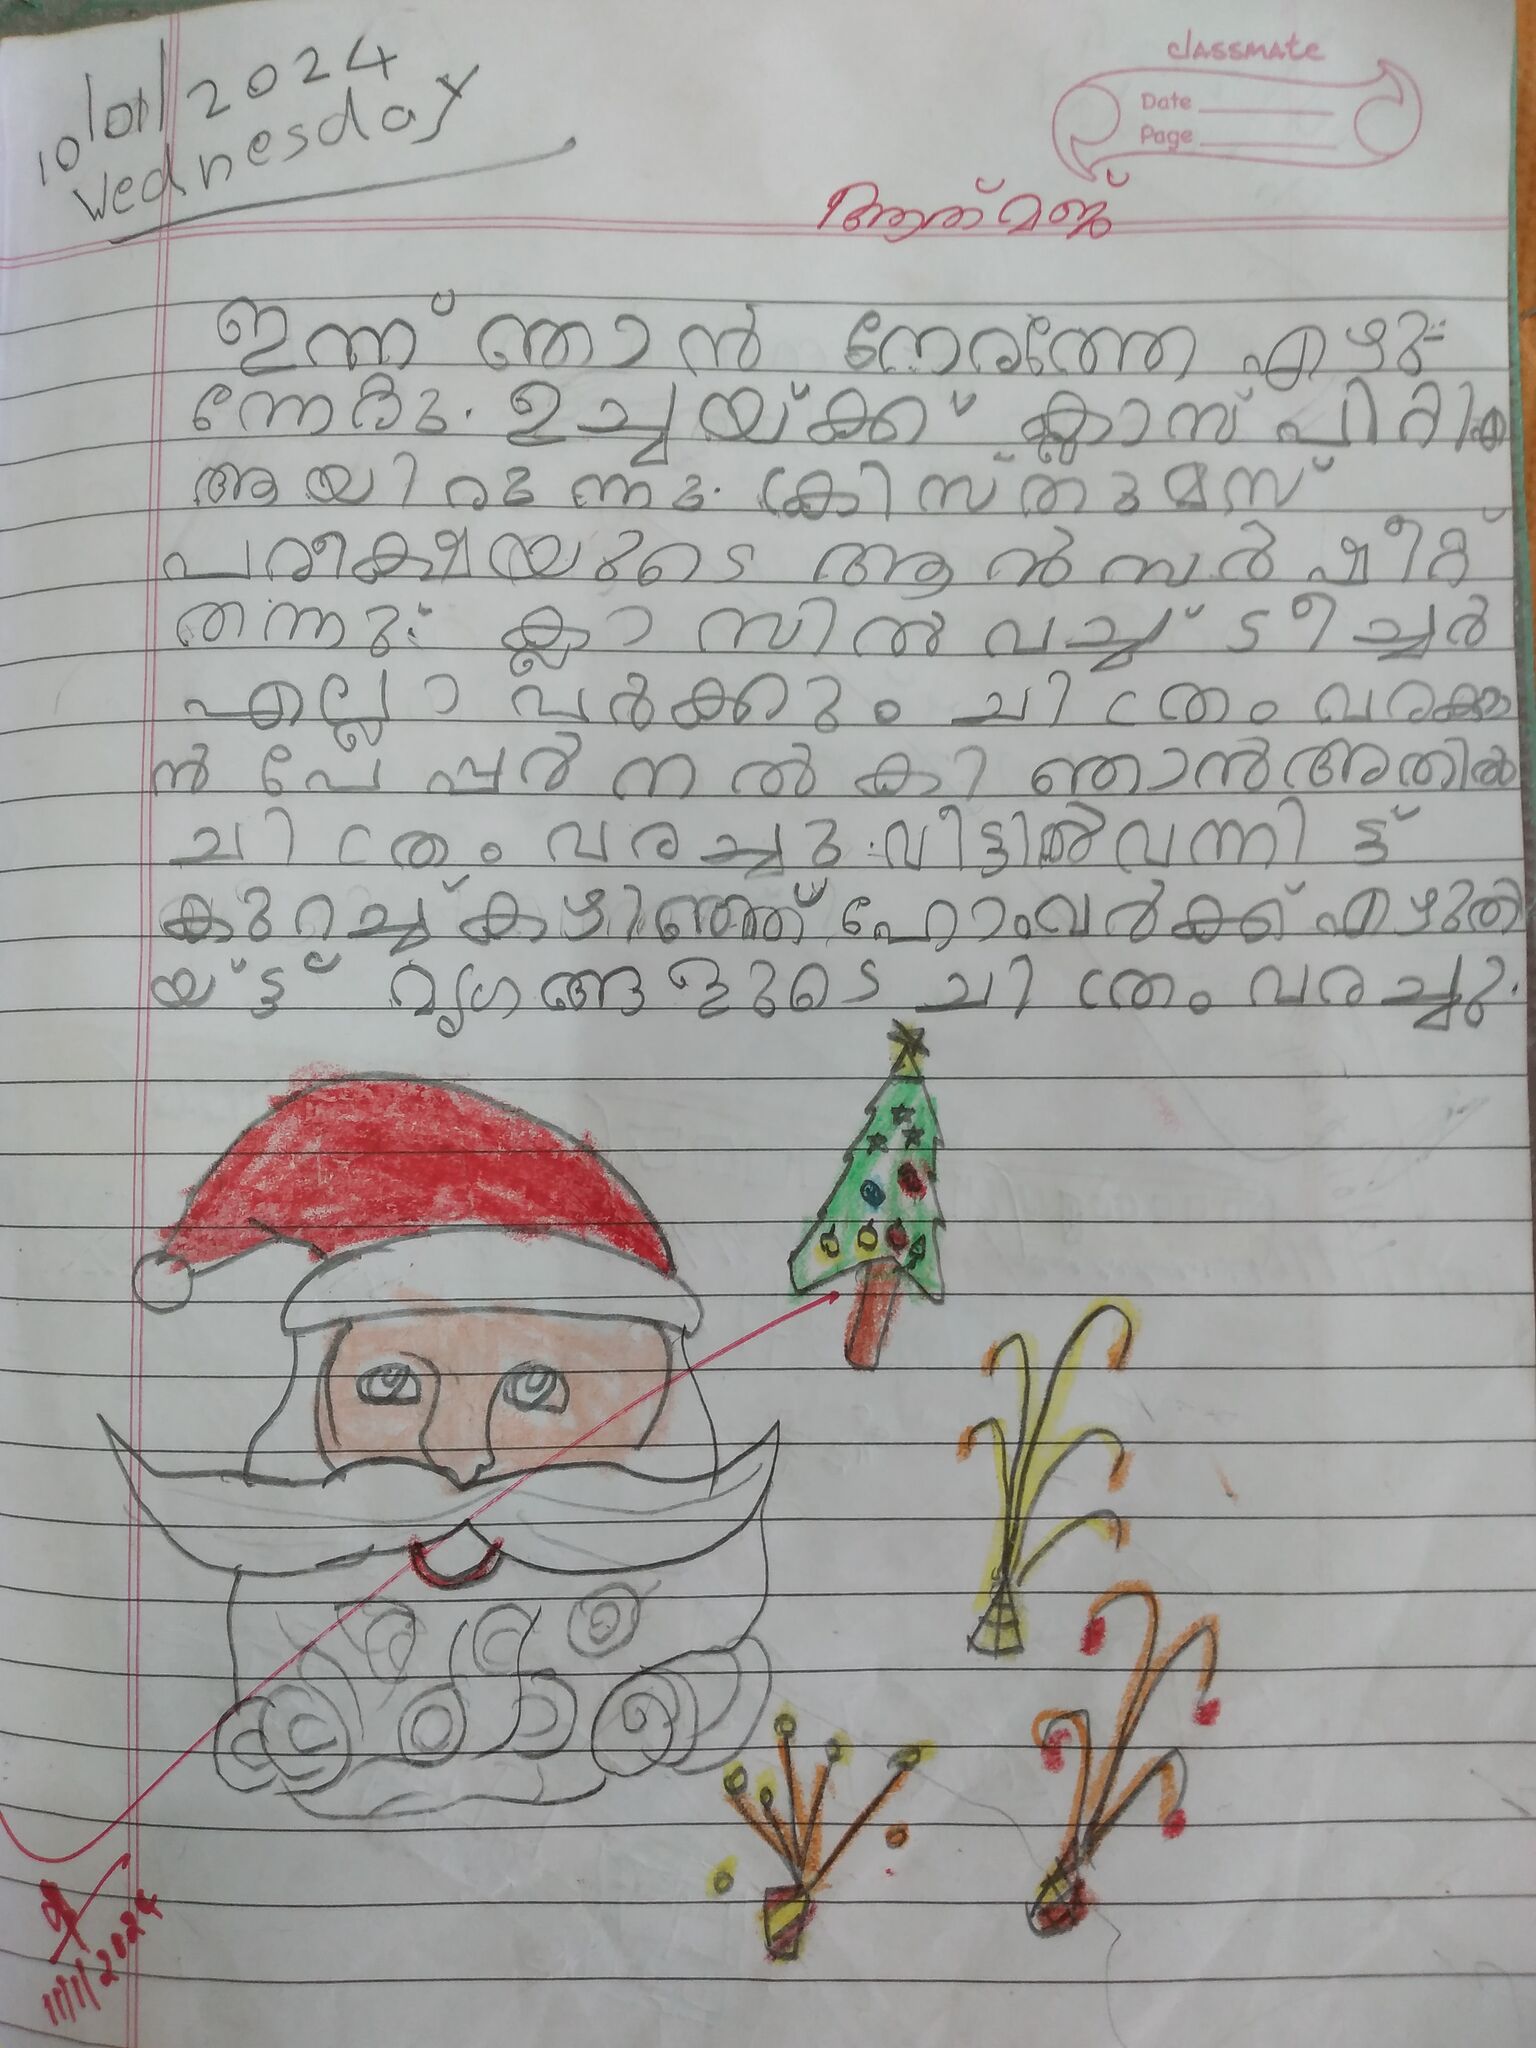 10/01/2024
Wednesday
classmate
Date
Page
ഇന്ന് ഞാൻ നേരത്തേ എഴു-
ന്നേറ്റു. ഉച്ചയ്ക്ക് ക്ലാസ് പിറ്റിഎ
ആയിരുന്നു. ക്രിസ്തുമസ്
പരീക്ഷയുടെ ആൻസർ ഷീറ്റ്
തന്നു. ക്ലാസിൽ വച്ച് ടീച്ചർ
എല്ലാവർക്കും ചിത്രം വരക്കാ
ൻ പേപ്പർ നൽകി ഞാൻ അതിൽ
ചിത്രം വരച്ചു. വീട്ടിൽ വന്നിട്ട്
കുറച്ച് കഴിഞ്ഞ് ഹോംവർക്ക് എഴുതി
യ്ട്ട് മൃഗങ്ങളുടെ ചിത്രം വരച്ചു.
11/1/2024